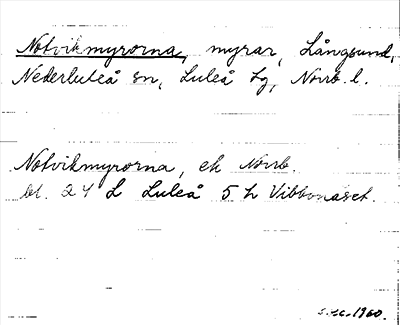 Notvikmyrorna, myrar, Långsund,
Nederluleå sn, Luleå tg, Norrb. l.
Notvikmyrorna, ek Norrb.
bl. 24 L Luleå 5 h Vibbonäset.
1960.